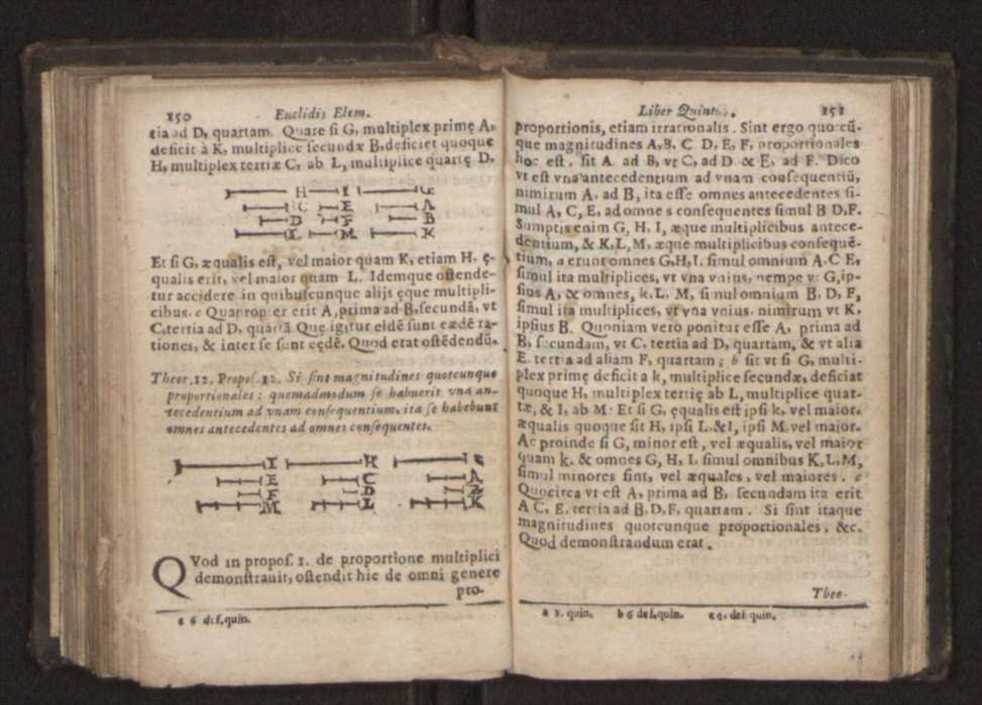 150 Euclidis Elem.
tia ad D, quartam. Quare si G, multiplex primę A,
deficit à K, multiplice secundæ B, deficiet quoque
H, multiplex tertiæ C, ab L, multiplice quartę D.
H I G
C E A
D F B
L M K
Et si G, æqualis est, vel maior quam K, etiam H, ę-
qualis erit, vel maior quam L. Idemque ostende-
tur accidere in quibuscunque alijs ęque multipli-
cibus. c Quapropter erit A, prima ad B, secundā, vt
C, tertia ad D, quartā. Que igitur eidē sunt eædē ra-
tiones, & inter se sunt eędē. Quod erat ostēdendū.
Theor. 12. Propos. 12. Si sint magnitudines quotcunque
proportionales: quemadmodum se habuerit vna an-
tecedentium ad vnam consequentium, ita se habebunt
omnes antecedentes ad omnes consequentes.
I H G
E C A
F D B
M L K
QVod in propos. 1. de proportione multiplici
demonstrauit, ostendit hic de omni genere
pro-
c 6 def. quin.
Liber Quintus. 151
proportionis, etiam irrationalis. Sint ergo quotcū-
que magnitudines A, B, C, D, E, F, proportionales
hoc est, sit A. ad B, vt C, ad D & E, ad F. Dico
vt est vna antecedentium ad vnam consequentiū,
nimirum A, ad B, ita esse omnes antecedentes si-
mul A, C, E, ad omnes consequentes simul B D, F.
Sumptis enim G, H, I, æque multiplicibus antece-
dentium, & K, L, M, æque multiplicibus consequē-
tium, a erunt omnes G, H, I. simul omnium A. C E,
simul ita multiplices, vt vna vnius, nempe vt G, ip-
sius A, & omnes, k. L. M, simul omnium B. D, F,
simul ita multiplices, vt vna vnius. nimirum vt K,
ipsius B. Quoniam vero ponitur esse A, prima ad
B, secundam, vt C. tertia ad D, quartam, & vt alia
E. tertia ad aliam F, quartam; b sit vt si G, multi-
plex primę deficit a k, multiplice secundæ, deficiat
quoque H, multiplex tertię ab L, multiplice quar-
tæ, & I, ab M. Et si G, ęqualis est ipsi k, vel maior,
æqualis quoque sit H, ipsi L. & I, ipsi M. vel maior.
Ac proinde si G, minor est, vel æqualis, vel maior
quam k. & omnes G, H, I. simul omnibus K, L, M,
simul minores sint, vel æquales, vel maiores. c
Quocirca vt est A, prima ad B, secundam ita erit
A C, E. tertia ad B. D. F. quartam. Si sint itaque
magnitudines quotcunque proportionales, &c.
Quod demonstrandum erat.
Theo-
a 1. quin. b 6 def. quin. c 6. def. quin.